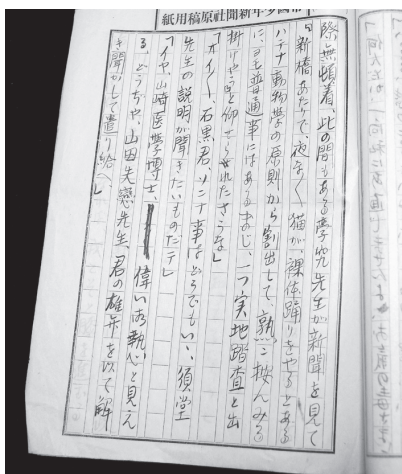 帝國少年新聞社原稿用紙
際無頓着、此の間もある学究先生が新聞を見て
「新橋あたりで、夜な〱猫が裸体踊りをやるとある
ハテナ動物学の原則から割出して、熟々按んみる
に、ヨモ普通事にはあるまじ、一つ実地踏査と出
掛けやうと仰せられたさうな」
「オイ〱、石黒君、ソンナ事はどうでもいゝ、須堂
先生の説明が聞きたいものだテ」
「イヤ、山崎医学博士、偉い御執心と見え
る、どうぢや、山田失戀先生、君の雄弁を以て解
き聞かして遣り給へ」